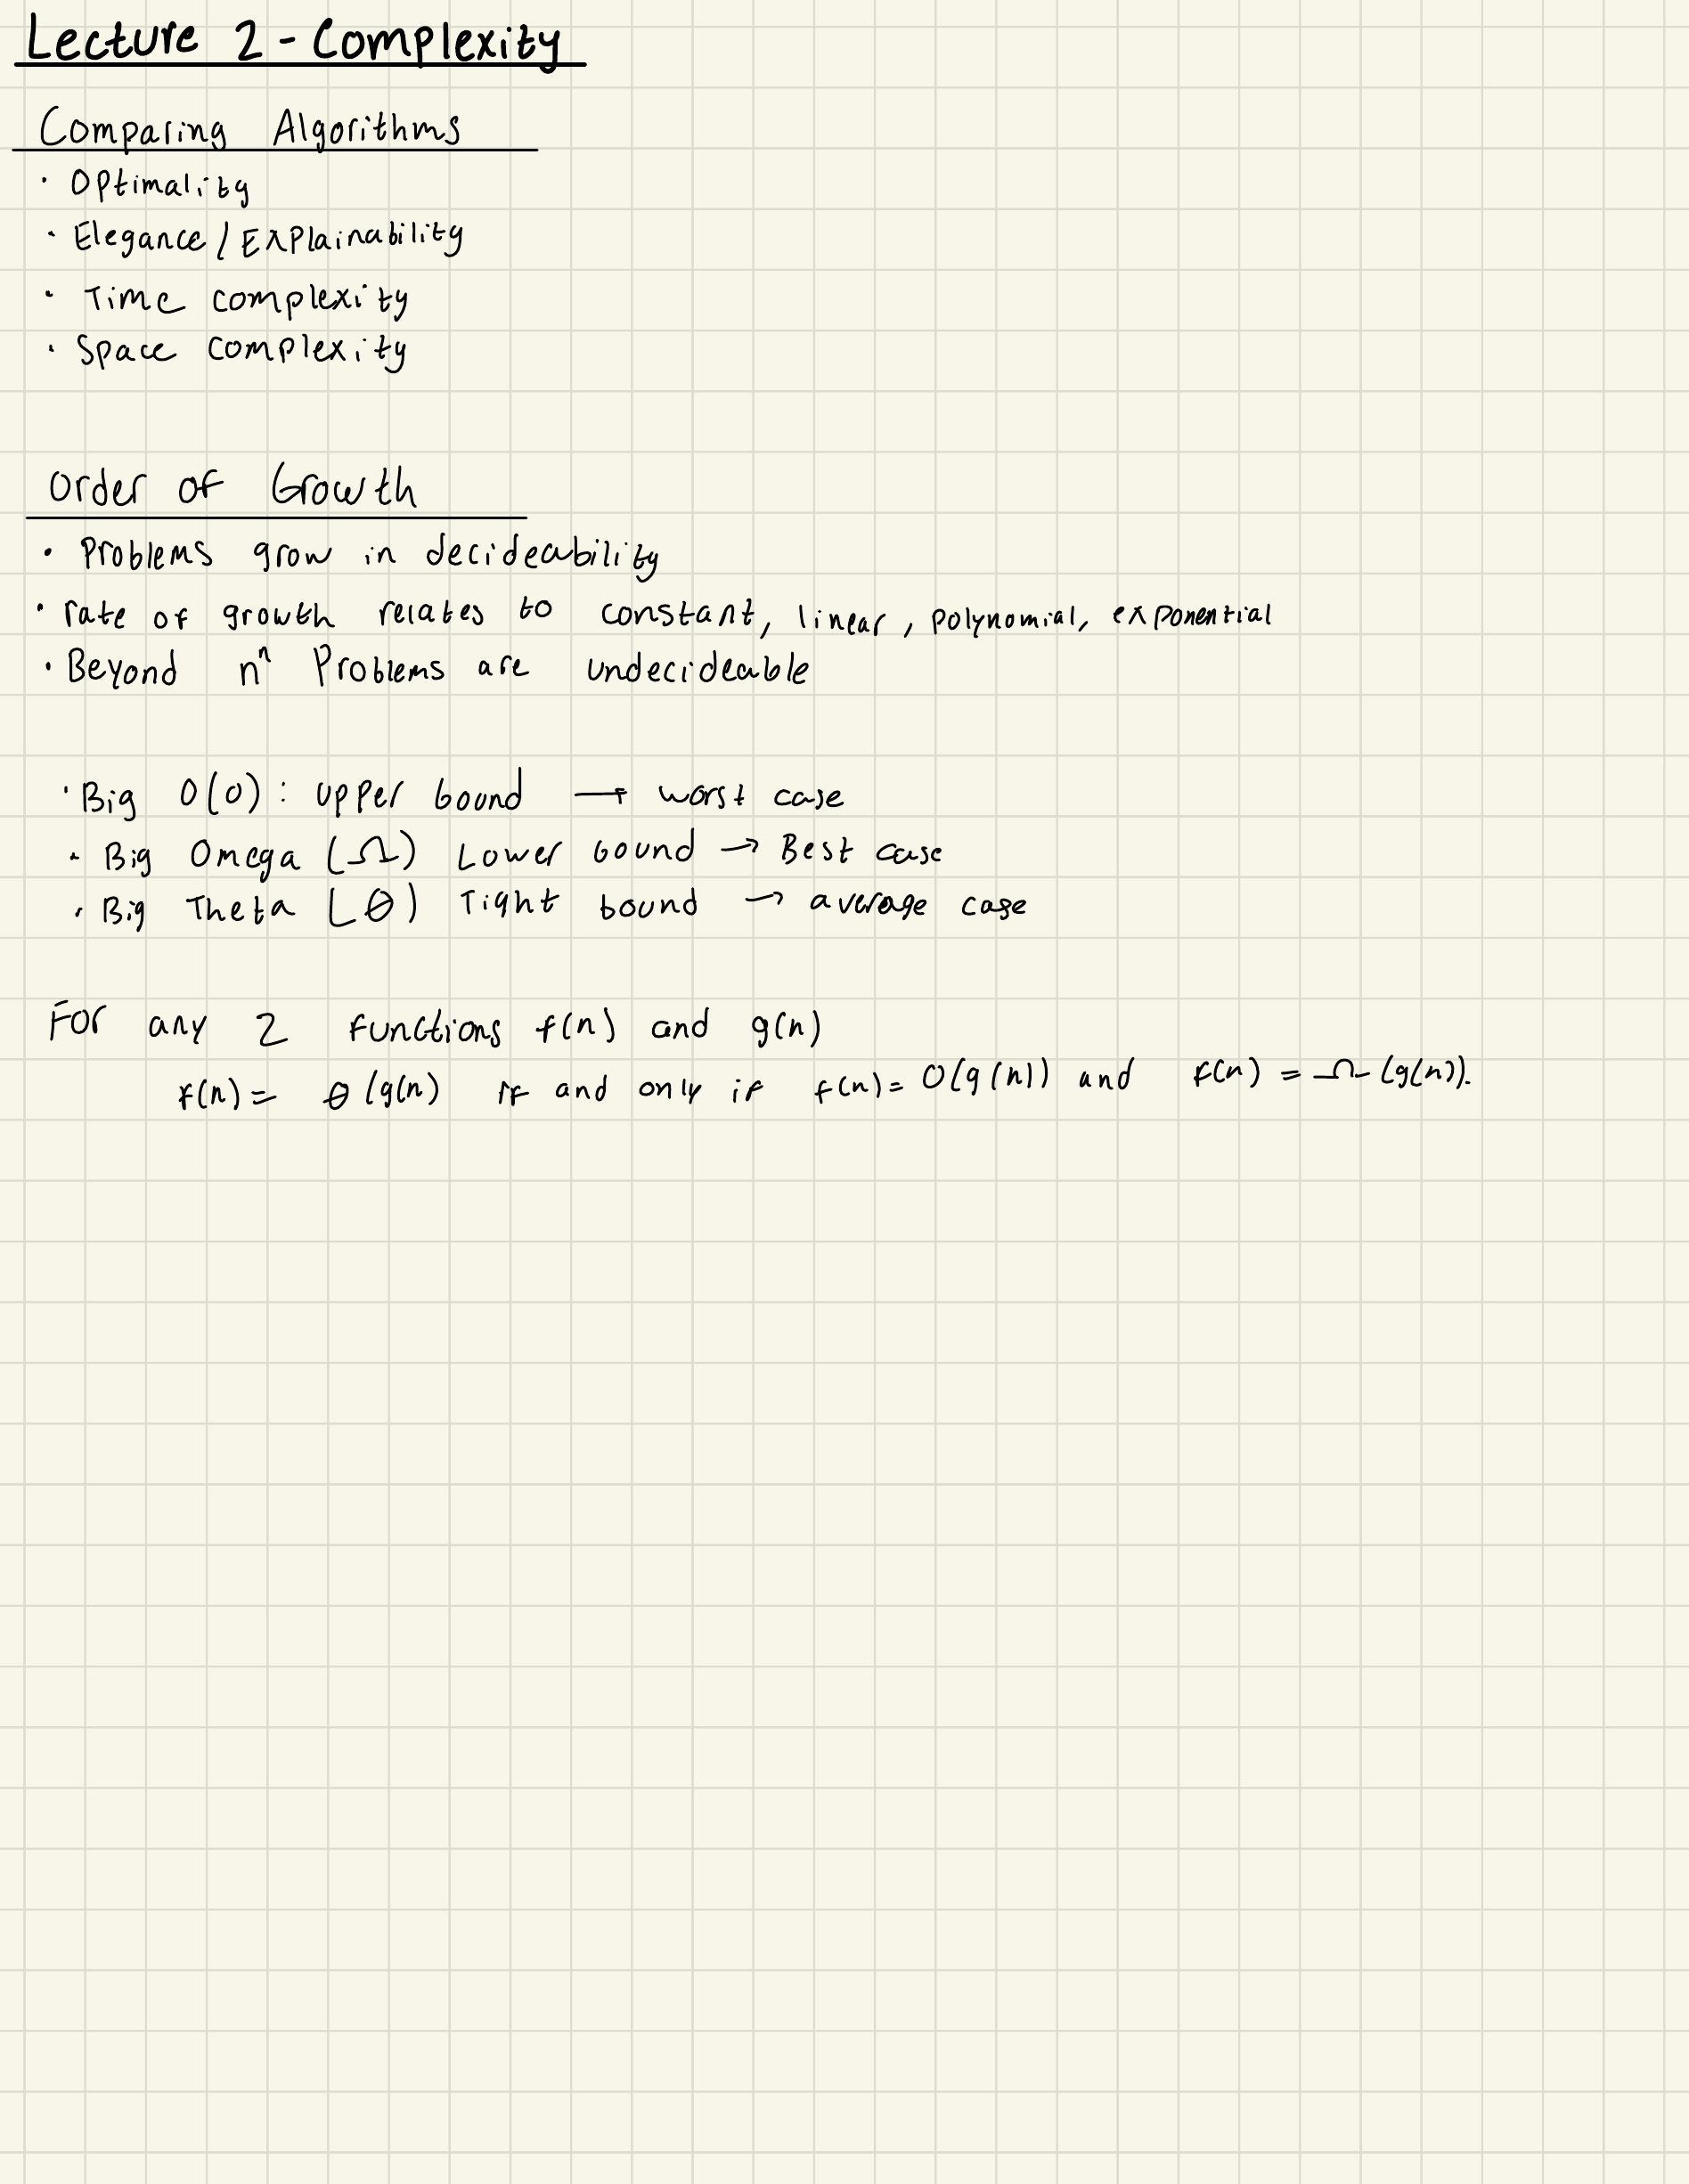 Lecture 2 - Complexity
Comparing Algorithms
· Optimality
· Elegance/Explainability
· Time complexity
· Space complexity
Order of Growth
· Problems grow in decideability
· rate of growth relates to constant, linear, polynomial, exponential
· Beyond nⁿ Problems are undecideable
· Big O(O): upper bound → worst case
· Big Omega (Ω) Lower bound → Best case
· Big Theta (θ) Tight bound → average case
For any 2 functions f(n) and g(n)
f(n) = θ(g(n) if and only if f(n) = O(g(n)) and f(n) = Ω(g(n)).